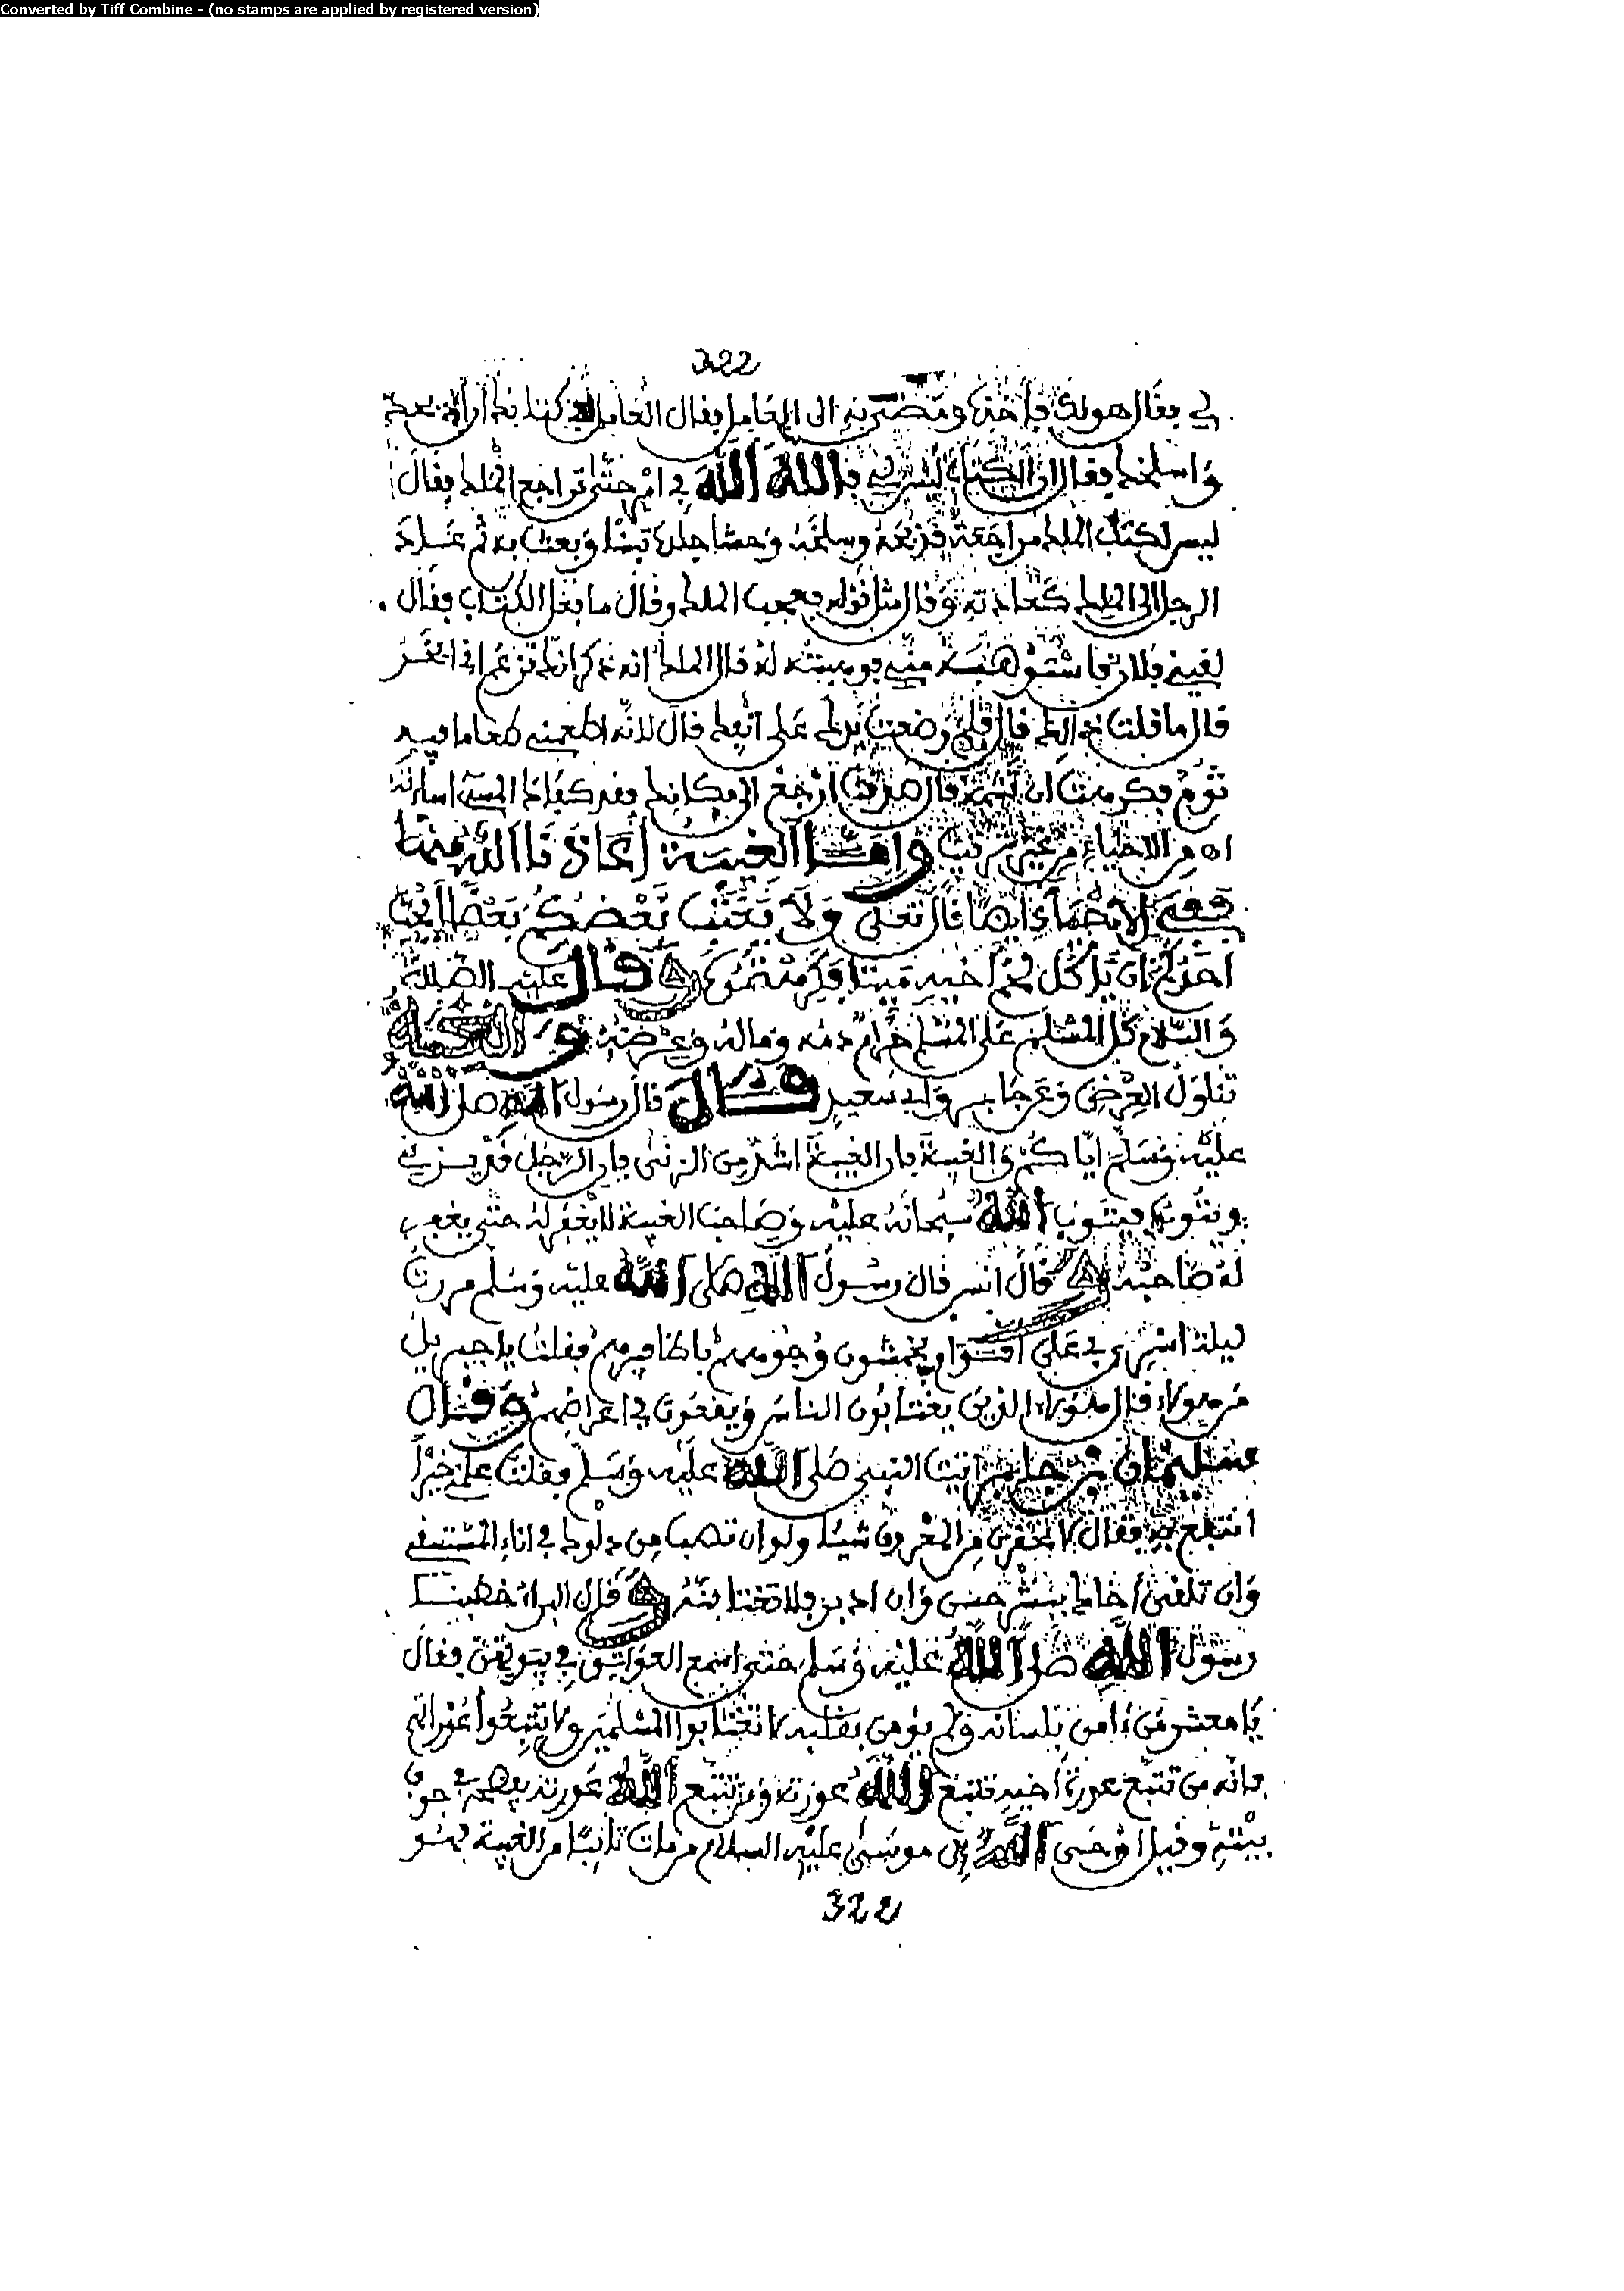 Converted by Tiff Combine - (no stamps are applied by registered version)
322
لي فقال هو لك فأخذه ومضى به الى العامل فقال العامل في كتابك أن أذبحك
وأسلخك فقال ان الكتاب ليس لي فالله الله في امري حتى تراجع الملك فقال
ليس لكتاب الملك مراجعة فذبحه وسلخه وحشا جلده تبنا وبعث به ثم عاد
الرجل الى الملك كعادته وقال مثل قوله فعجب الملك وقال ما فعل الكتاب فقال
لقيني فلان فاستوهبه مني فوهبته له قال الملك انه ذكر انك تزعم اني ابخر
قال ما قلت ذلك قال فلم وضعت يدك على انفك قال لانه اطعمني طعاما فيه
ثوم فكرهت ان تشمه قال صدقت ارجع الى مكانك فقد كفاك المسيء اساءته
وأما الغيبة أعاذنا الله منها
ففي الاحياء ايضا قال تعلى ولا يغتب بعضكم بعضا أيحب
احدكم ان ياكل لحم أخيه ميتا فكرهتموه قال عليه الصلاة
والسلام كل المسلم على المسلم حرام دمه وماله وعرضه والغيبة
تناول العرض وعن جابر وابي سعيد قال قال رسول الله صلى الله
عليه وسلم اياكم والغيبة فان الغيبة اشد من الزنى فان الرجل قد يزني
ويتوب فيتوب الله سبحانه عليه وصاحب الغيبة لا يغفر له حتى يغفر
له صاحبه قال انس قال رسول الله صلى الله عليه وسلم مررت
ليلة اسري بي على اقوام يخمشون وجوههم باظافيرهم فقلت يا جبريل
من هولاء قال هولاء الذين يغتابون الناس ويقعون في اعراضهم وقال
سليمان بن جابر اتيت النبي صلى الله عليه وسلم فقلت علمني خيرا
انتفع به فقال لا تحقرن من المعروف شيئا ولو ان تصب من دلوك في اناء المستقي
وان تلقى أخاك ببشر حسن وان ادبر فلا تغتابنه قال البراء خطبنا
رسول الله صلى الله عليه وسلم حتى اسمع العواتق في بيوتهن فقال
يا معشر من ءامن بلسانه ولم يومن بقلبه لا تغتابوا المسلمين ولا تتبعوا عوراتهم
فانه من تتبع عورة أخيه تتبع الله عورته ومن تتبع الله عورته يفضحه في جوف
بيته وقيل اوحى الله الى موسى عليه السلام من مات تائبا من الغيبة فهو
322